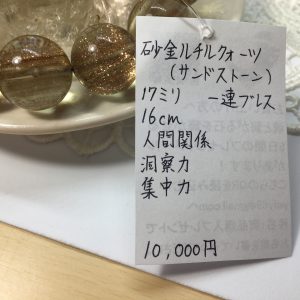 砂金ルチルクォーツ
(サンドストーン)
17ミリ 一連ブレス
16cm
人間関係
洞察力
集中力
10,000円